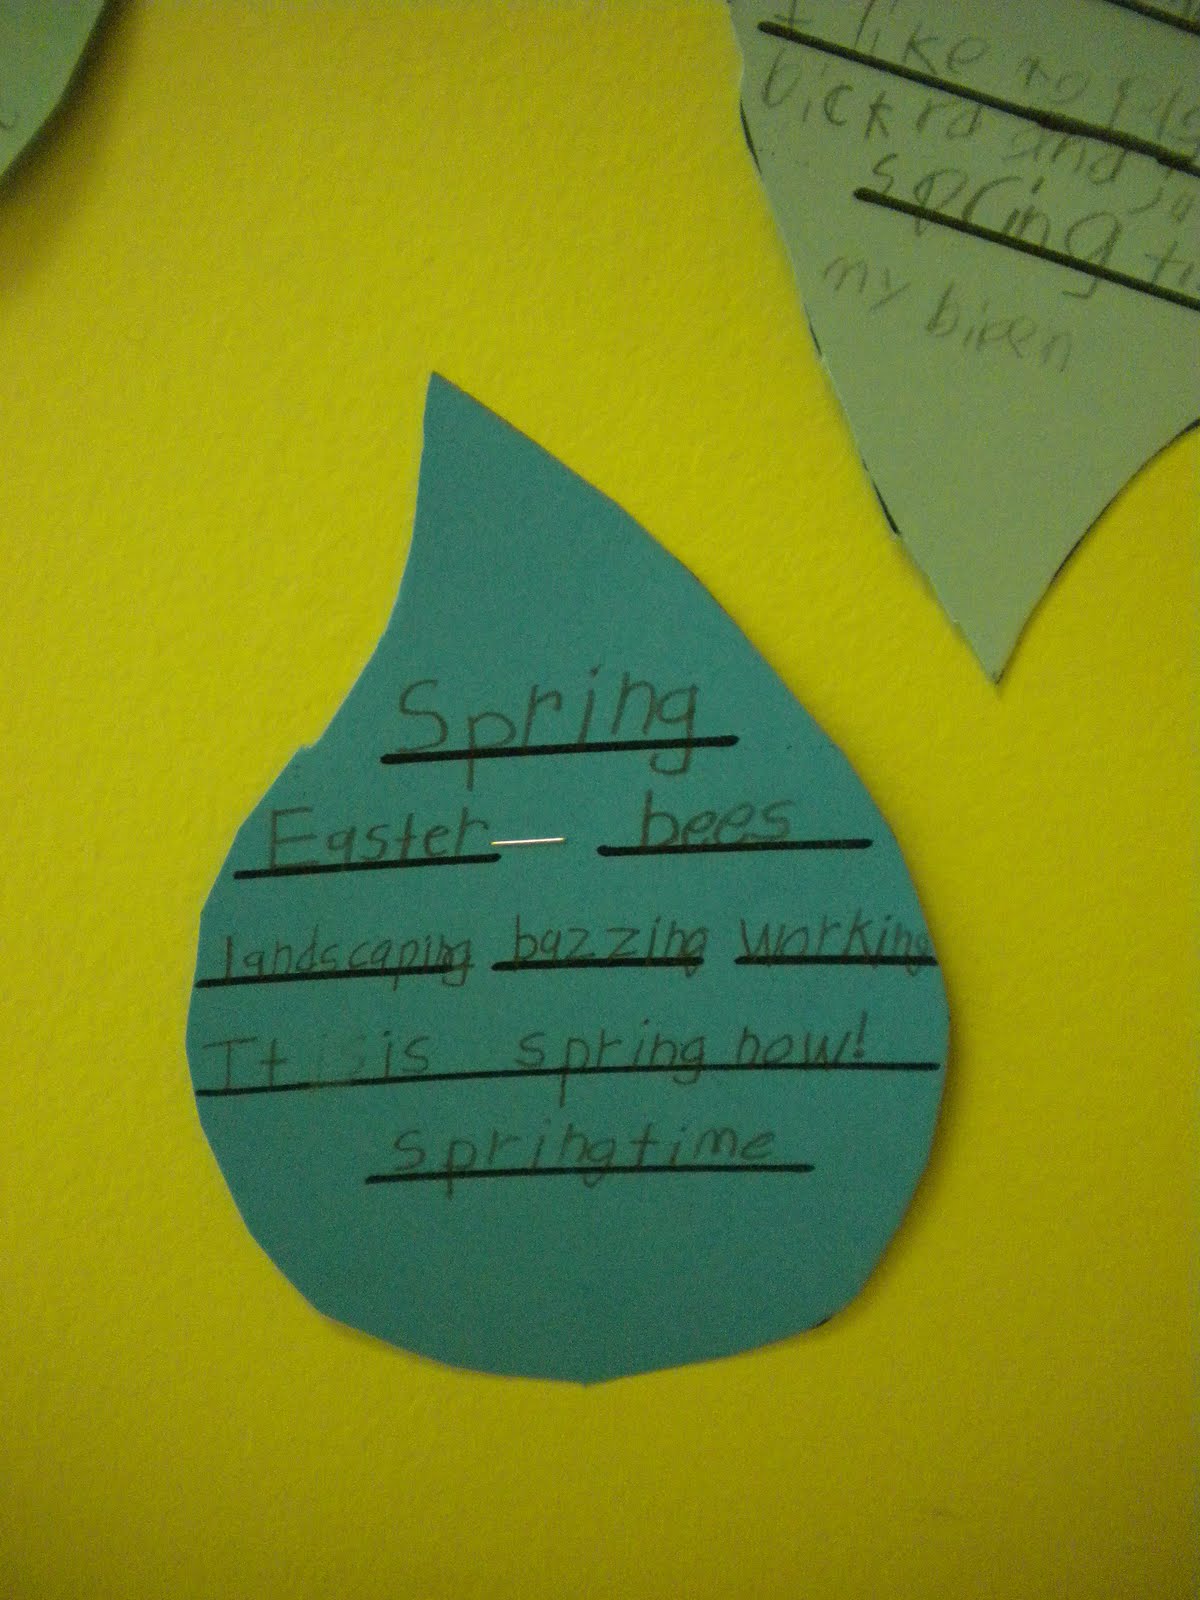 I like to
and
spring
my
Spring
Easter bees
landscaping bazzing working
It is is spring now!
springtime